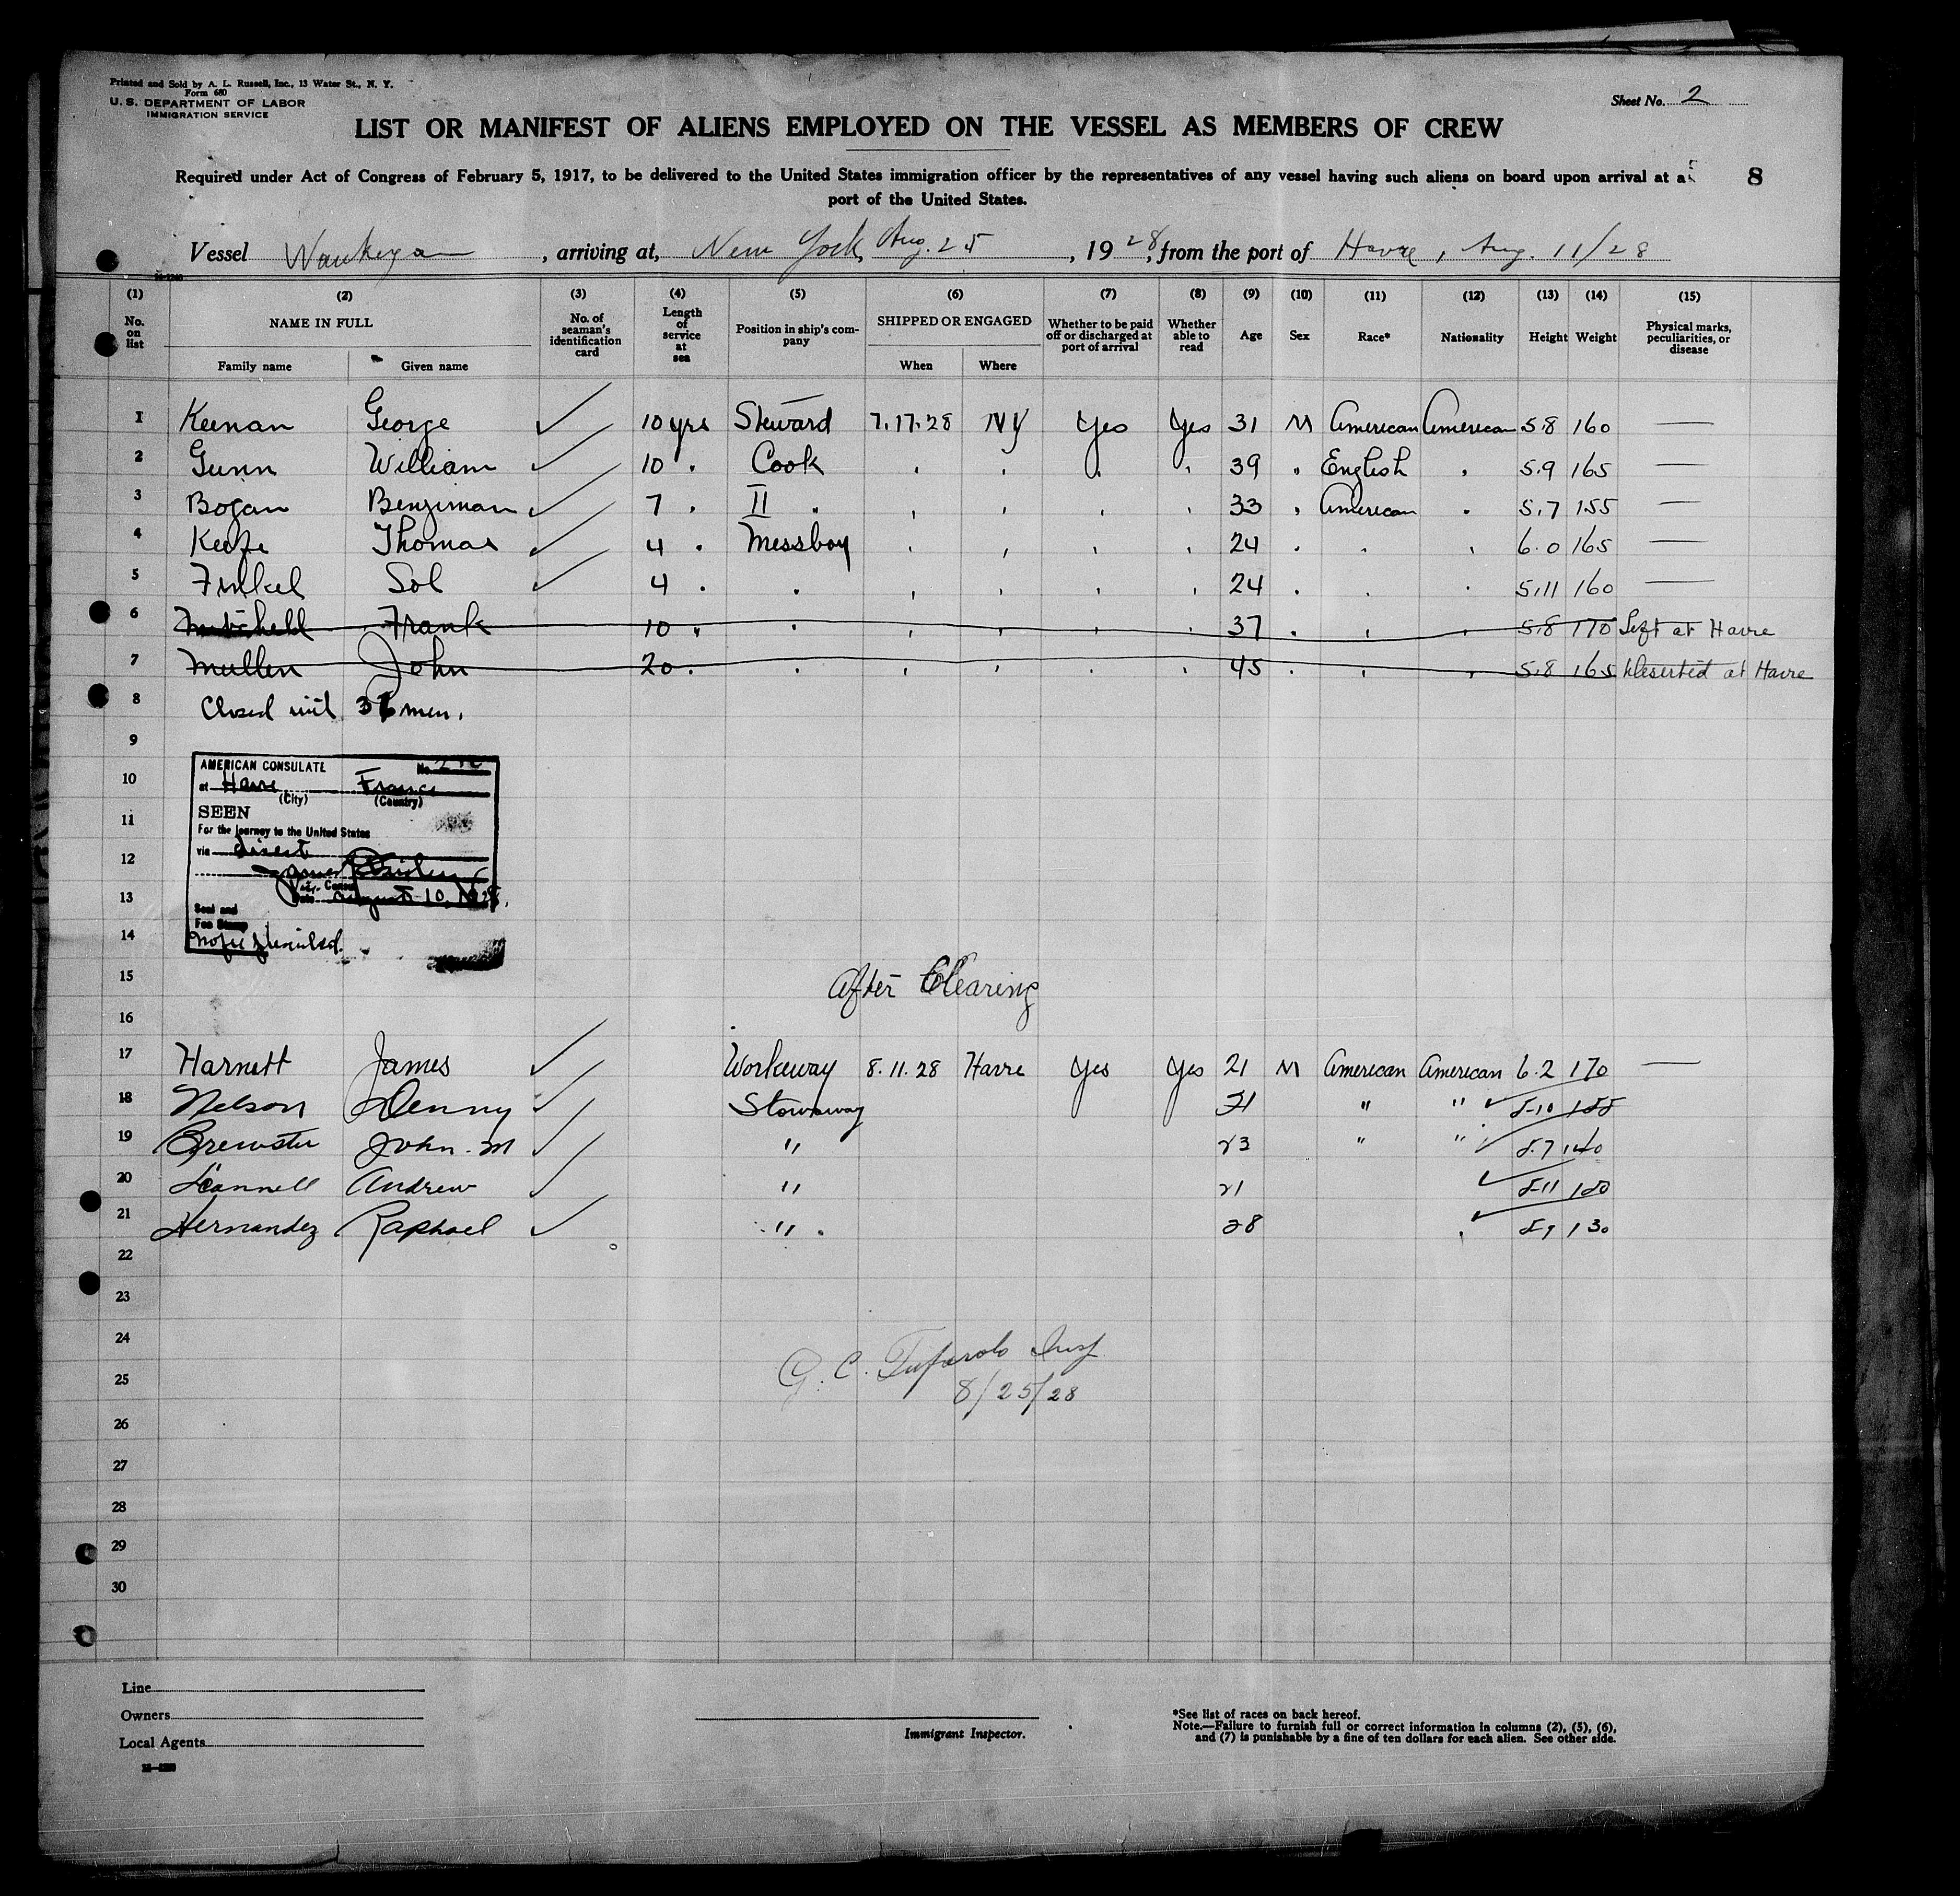 Printed and Sold by A. L. Russell, Inc., 13 Water St., N. Y.
Form 680
U. S. DEPARTMENT OF LABOR
IMMIGRATION SERVICE
Sheet No. 2
LIST OR MANIFEST OF ALIENS EMPLOYED ON THE VESSEL AS MEMBERS OF CREW
Required under Act of Congress of February 5, 1917, to be delivered to the United States immigration officer by the representatives of any vessel having such aliens on board upon arrival at a
port of the United States.
8
Vessel Waukegan, arriving at, New York, Aug. 25, 1928, from the port of Havre, Aug. 11/28
(1) (2) (3) (4) (5) (6) (7) (8) (9) (10) (11) (12) (13) (14) (15)
No. on list NAME IN FULL No. of seaman's identification card Length of service at sea Position in ship's company SHIPPED OR ENGAGED Whether to be paid off or discharged at port of arrival Whether able to read Age Sex Race* Nationality Height Weight Physical marks, peculiarities, or disease
Family name Given name When Where
1 Keenan George 10 yrs Steward 7.17.28 NY Yes Yes 31 M American American 5.8 160 —
2 Gunn William 10 " Cook " " " " 39 " English " 5.9 165 —
3 Bogan Benjiman 7 " II " " " " " 33 " American " 5.7 155 —
4 Keefe Thomas 4 " Messboy " " " " 24 " " " 6.0 165 —
5 Finkel Sol 4 " " " " " " 24 " " " 5.11 160 —
6 Mitchell Frank 10 " " " " " " 37 " " " 5.8 170 Left at Havre
7 Mullen John 20 " " " " " " 45 " " " 5.8 165 Deserted at Havre
8 Closed with 36 men.
9
AMERICAN CONSULATE No.
10
at Havre France
(City) (Country)
SEEN
11
For the journey to the United States
via direct
12
Consul
13
Date August 10, 1928.
Seal and
Fee Stamp
14
No fee prescribed.
15 After Clearing
16
17 Harnett James Workaway 8.11.28 Havre Yes Yes 21 M American American 6.2 170 —
18 Nelson Denny Stowaway 21 " " 5-10 155
19 Brewster John. M " 23 " " 5.7 140
20 Andrew " 21 5-11 150
21 Hernandez Raphael " 28 5-9 130
22
23
24
G. C. Insp
25
8/25/28
26
27
28
29
30
Line
Owners
Local Agents
Immigrant Inspector.
*See list of races on back hereof.
Note.—Failure to furnish full or correct information in columns (2), (5), (6),
and (7) is punishable by a fine of ten dollars for each alien. See other side.